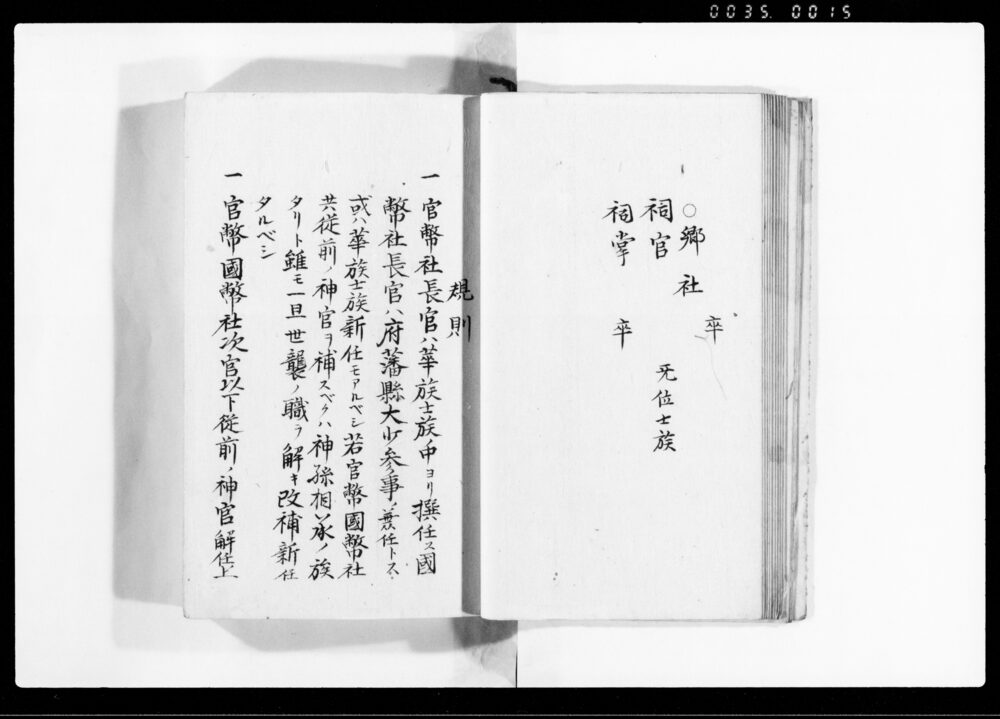 0035. 0015
○郷社
卒
祠官
旡位士族
祠掌 卒
規則
一官幣社長官ハ華族士族ノ中ヨリ撰任ス國
幣社長官ハ府藩縣大少参事ノ兼任トス
或ハ華族士族新任モアルベシ若官幣國幣社
共従前ノ神官ヲ補スベクハ神孫相承ノ族
タリト雖モ一旦世襲ノ職ヲ解キ改補新任
タルベシ
一官幣國幣社次官以下従前ノ神官解任上